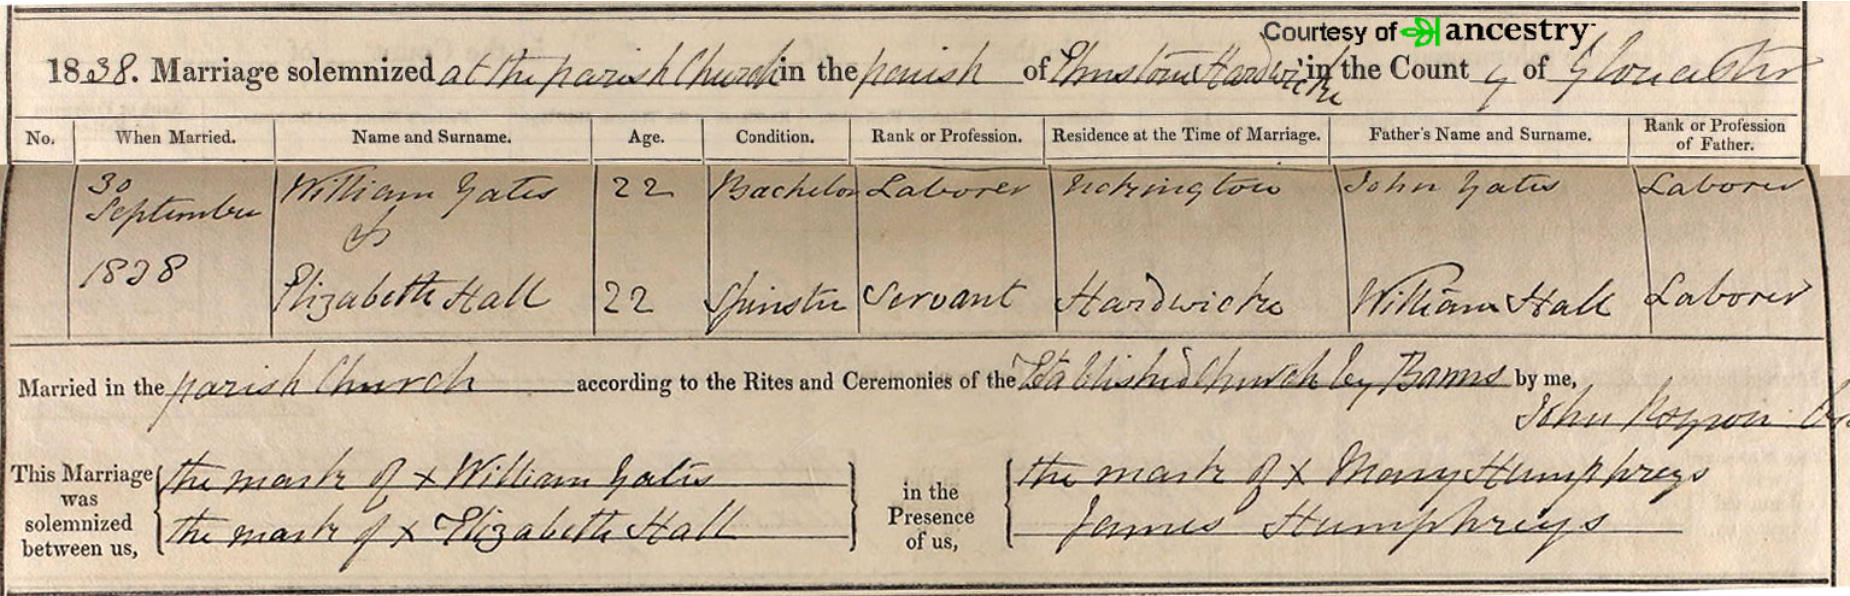 Courtesy of ancestry
1838. Marriage solemnized at the parish Church in the parish of Elmstone Hardwicke in the County of Gloucester
No. When Married. Name and Surname. Age. Condition. Rank or Profession. Residence at the Time of Marriage. Father's Name and Surname. Rank or Profession of Father.
30 September 1838 William Yates 22 Bachelor Laborer Uckington John Yates Laborer
&
Elizabeth Hall 22 Spinster Servant Hardwicke William Hall Laborer
Married in the parish Church according to the Rites and Ceremonies of the Established Church by Banns by me,
John
This Marriage was solemnized between us, the mark of x William Yates in the Presence of us, the mark of x Mary Humphreys
the mark of x Elizabeth Hall James Humphreys